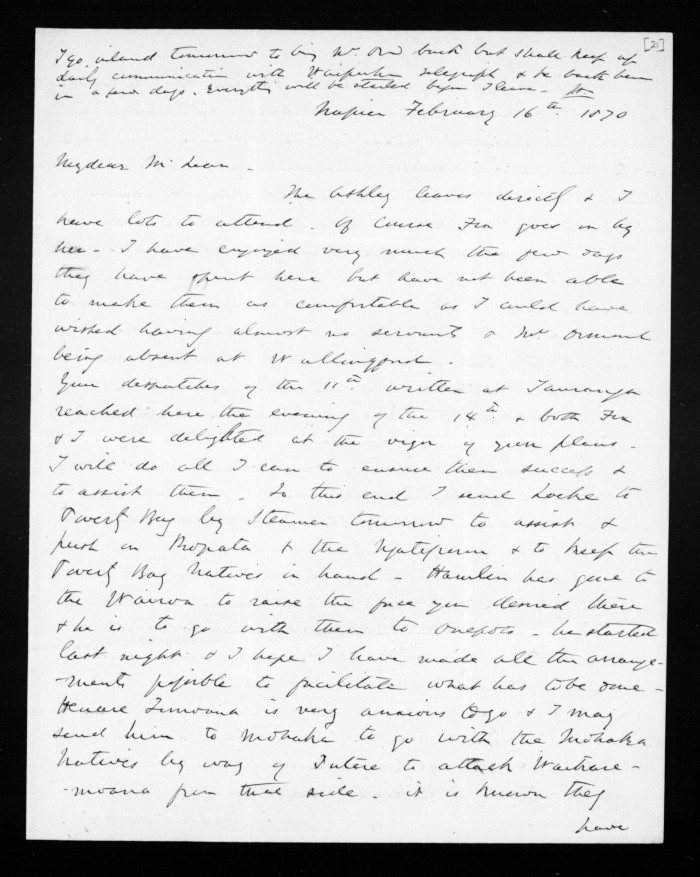 [21]
I go inland tomorrow to bring Mr. Ord back but shall keep up
daily communication with Waipuku telegraph & be back here
in a few days. Everything will be started before I leave.
Napier February 16th 1870
My dear McLean -
The Ashley leaves directly & I
have lots to attend. Of course Fox goes on by
her. I have enjoyed very much the few days
they have spent here but have not been able
to make them as comfortable as I could have
wished having almost no servants & Mrs Ormond
being absent at Wallingford.
Your despatches of the 11th written at Tauranga
reached here the evening of the 14th & both Fox
& I were delighted at the vigor of your plans -
I will do all I can to ensure them success &
to assist them. To this end I send Locke to
Poverty Bay by Steamer tomorrow to assist &
push on Ropata & the Ngatiporou & to keep the
Poverty Bay Natives in hand - Hamlin has gone to
the Wairoa to raise the force you desired there
& he is to go with them to Onepoto - he started
last night & I hope I have made all the arrange-
-ments possible to facilitate what has to be done -
Henare Tomoana is very anxious to go & I may
send him to Mohaka to go with the Mohaka
Natives by way of Putere to attack Waikare-
-moana from that side. it is known they
have